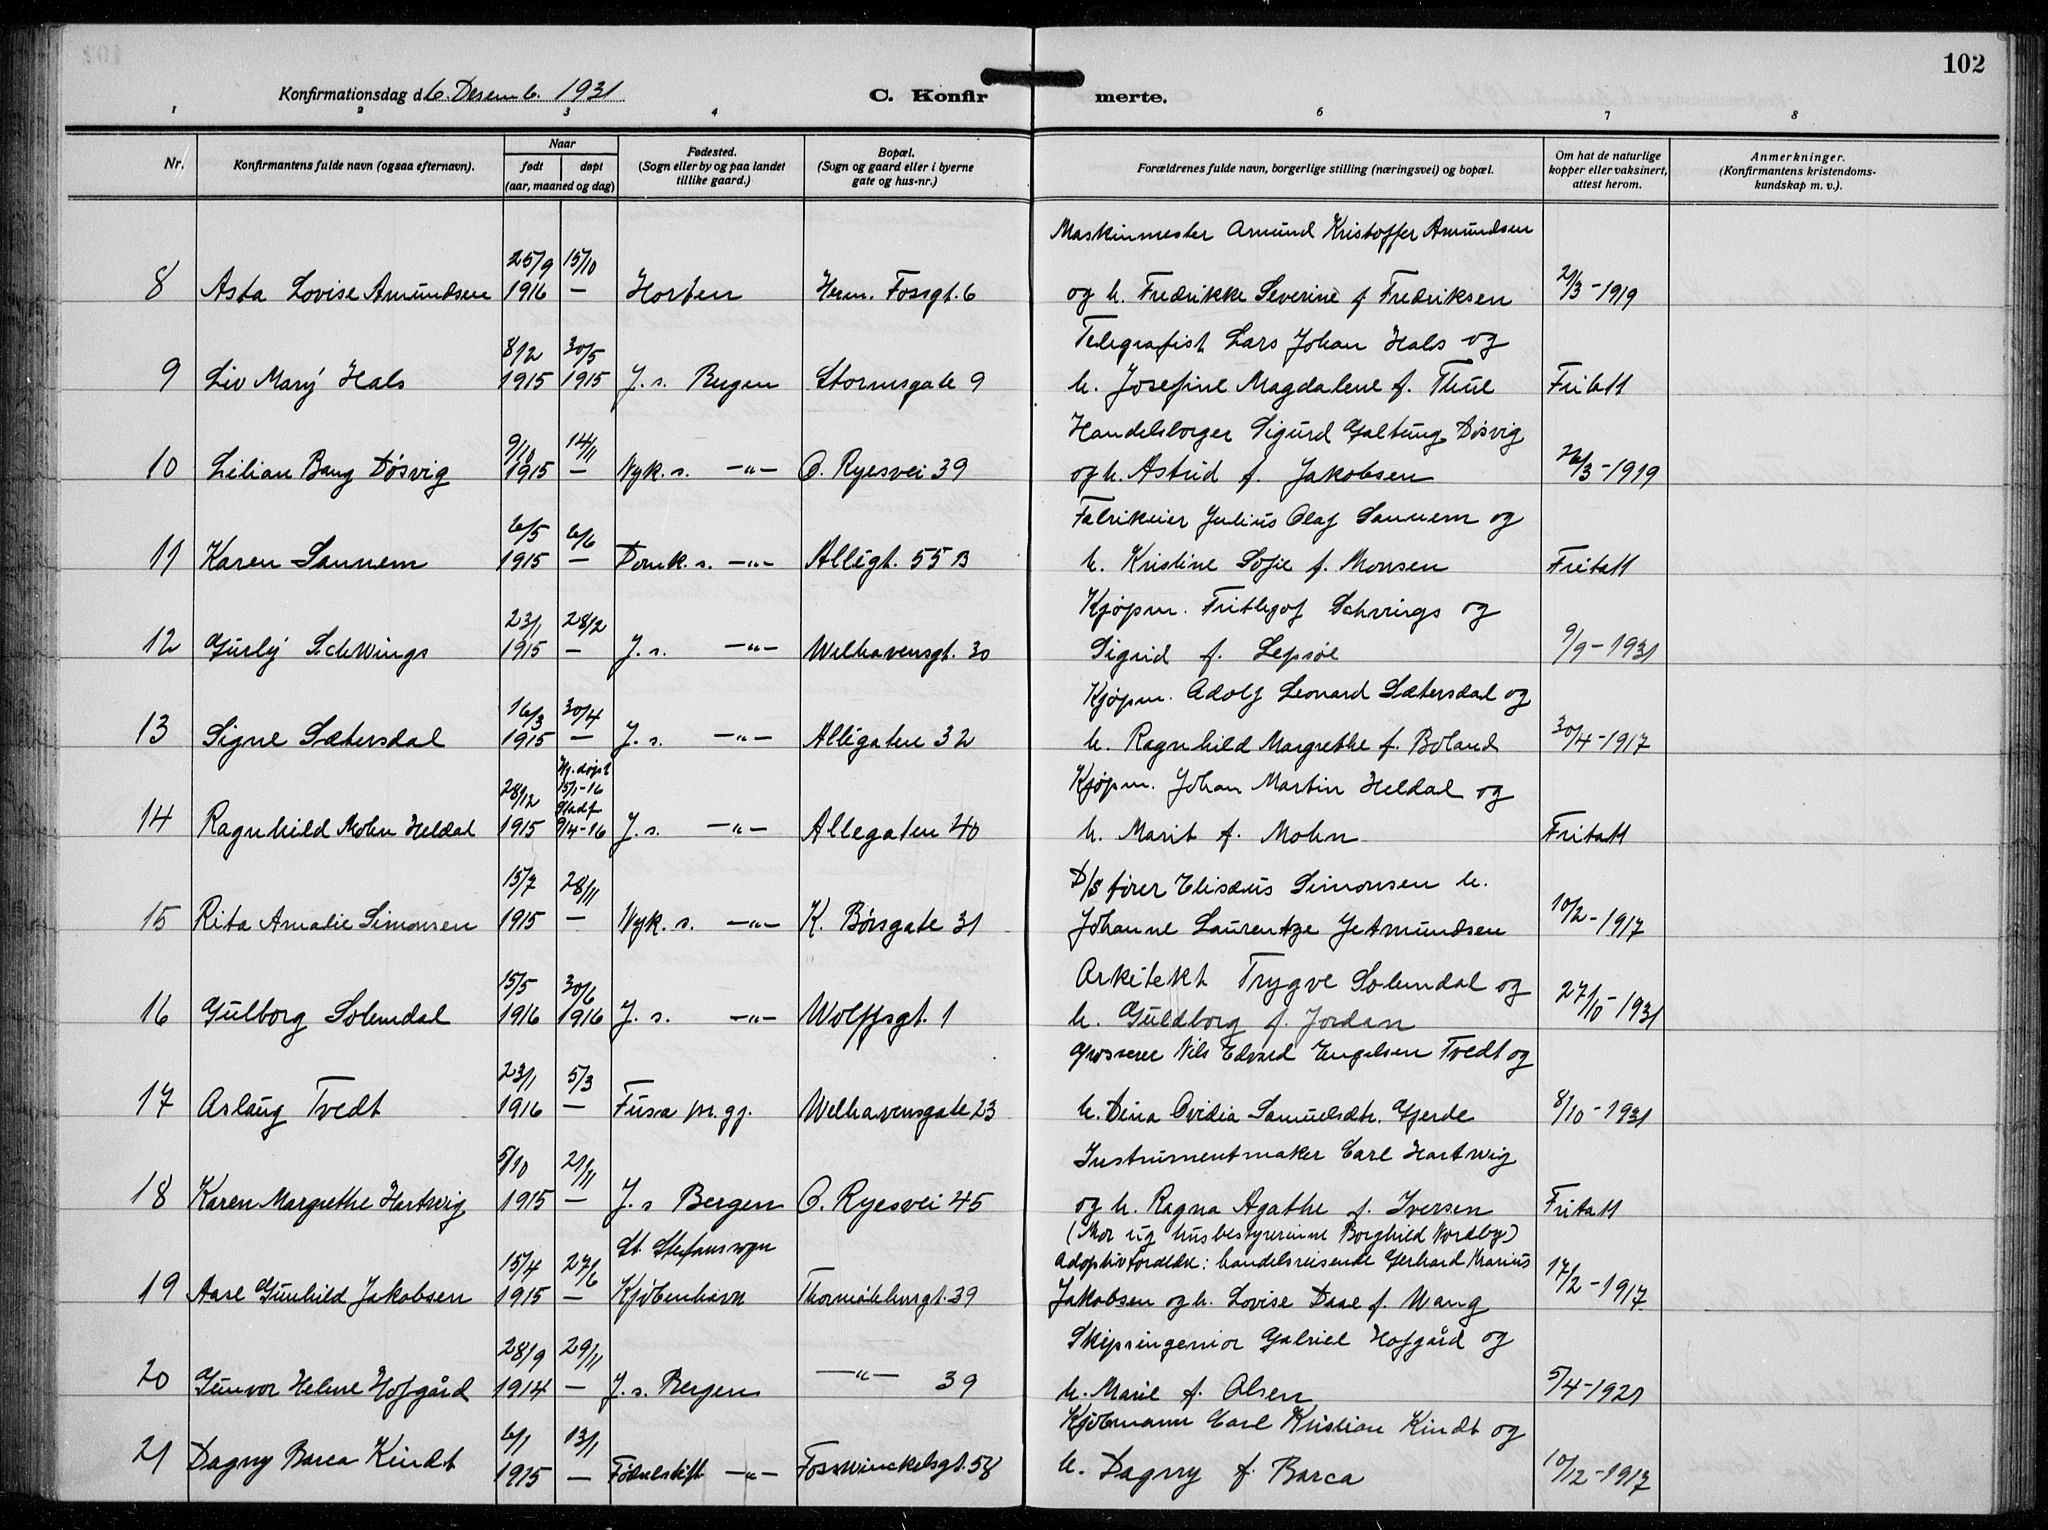 102
Konfirmationsdag d. 6. Desemb. 1931
C. Konfir merte.
1 2 3 4 6 7 8
Nr. Konfirmantens fulde navn (ogsaa efternavn). Naar født døpt (aar, maaned og dag) Fødested. (Sogn eller by og paa landet tillike gaard.) Bopæl. (Sogn og gaard eller i byerne gate og hus-nr.) Forældrenes fulde navn, borgerlige stilling (næringsvei) og bopæl. Om hat de naturlige kopper eller vaksinert, attest herom. Anmerkninger. (Konfirmantens kristendoms-kundskap m. v.).
25/9 15/10 Maskinmester Amund Kristoffer Amundsen
8 Asta Lovise Amundsen 1916 — Horten Herm. Fossgt. 6 og h. Fredrikke Severine f. Fredriksen 2/3-1919
8/2 30/5 Telegrafist Lars Johan Hals og
9 Liv Marý Hals 1915 1915 J. s. Bergen Stormsgate 9 h. Josefine Magdalene f. Thue Fritatt
9/10 14/11 Handelsborger Sigurd Galtung Døsvig
10 Lilian Bang Døsvig 1915 — Nyk. s. —"— O. Ryesvei 39 og h. Astrid f. Jakobsen 26/3-1919
6/5 6/6 Fabrikeier Julius Olaf Sannem og
11 Karen Sannem 1915 — Domk. s. —"— Allégt. 55 B h. Kristine Sofie f. Monsen Fritatt
23/1 28/2 Kjøpm. Frithjof Schwings og
12 Gurlý Schwings 1915 — J. s. —"— Welhavensgt. 30 Sigrid f. Lepsøe 9/9-1931
16/3 30/4 Kjøpm. Adolf Leonard Sætersdal og
13 Signe Sætersdal 1915 — J. s. —"— Allégaten 32 h. Ragnhild Margrethe f. Boland 30/4-1917
28/12 Hj. døpt 15/1-16 Kjøpm. Johan Martin Heldal og
14 Ragnhild Mohn Heldal 1915 stadf 9/4-16 J. s. —"— Allegaten 40 h. Marit f. Mohn Fritatt
15/7 28/11 D/S fører Elisæus Simonsen h.
15 Rita Amalie Simonsen 1915 — Nyk. s. —"— K. Børsgate 31 Johanne Laurentze f. Amundsen 10/2-1917
15/5 30/6 Arkitekt Trygve Solemdal og
16 Gulborg Solemdal 1916 1916 J. s. —"— Wolffsgt. 1 h. Guldborg f. Jordan 27/10-1931
23/1 5/3 Grosserer Nils Edvard Engelsen Tvedt og
17 Aslaug Tvedt 1916 — Fusa pr. gj. Welhavensgate 23 h. Dina Ovidia Samuelsdtr. Gjerde 8/10-1931
5/10 21/11 Instrumentmaker Carl Hartwig
18 Karen Margrethe Hartwig 1915 — J. s Bergen O. Ryesvei 45 og h. Ragna Agathe f. Iversen Fritatt
St. Stefans sogn (Mor ug husbestyrerinne Borghild Nordby)
15/4 27/6 Adoptivforeldre: handelsreisende Gerhard Marius
19 Aase Gunhild Jakobsen 1915 — Kjøbenhavn Thormøhlensgt. 39 Jakobsen og h. Lovise Daae f. Wang 17/2-1917
28/9 29/11 Skipsingeniør Gabriel Hofgård og
20 Gunvor Helene Hofgård 1914 — J. s. Bergen —"— 39 h. Marie f. Olsen 5/4-1921
6/1 13/1 Kjøbmann Carl Kristian Kindt og
21 Dagny Barca Kindt 1915 — Fødselsstift —"— Fosswinckelsgt. 58 h. Dagny f. Barca 10/12-1917